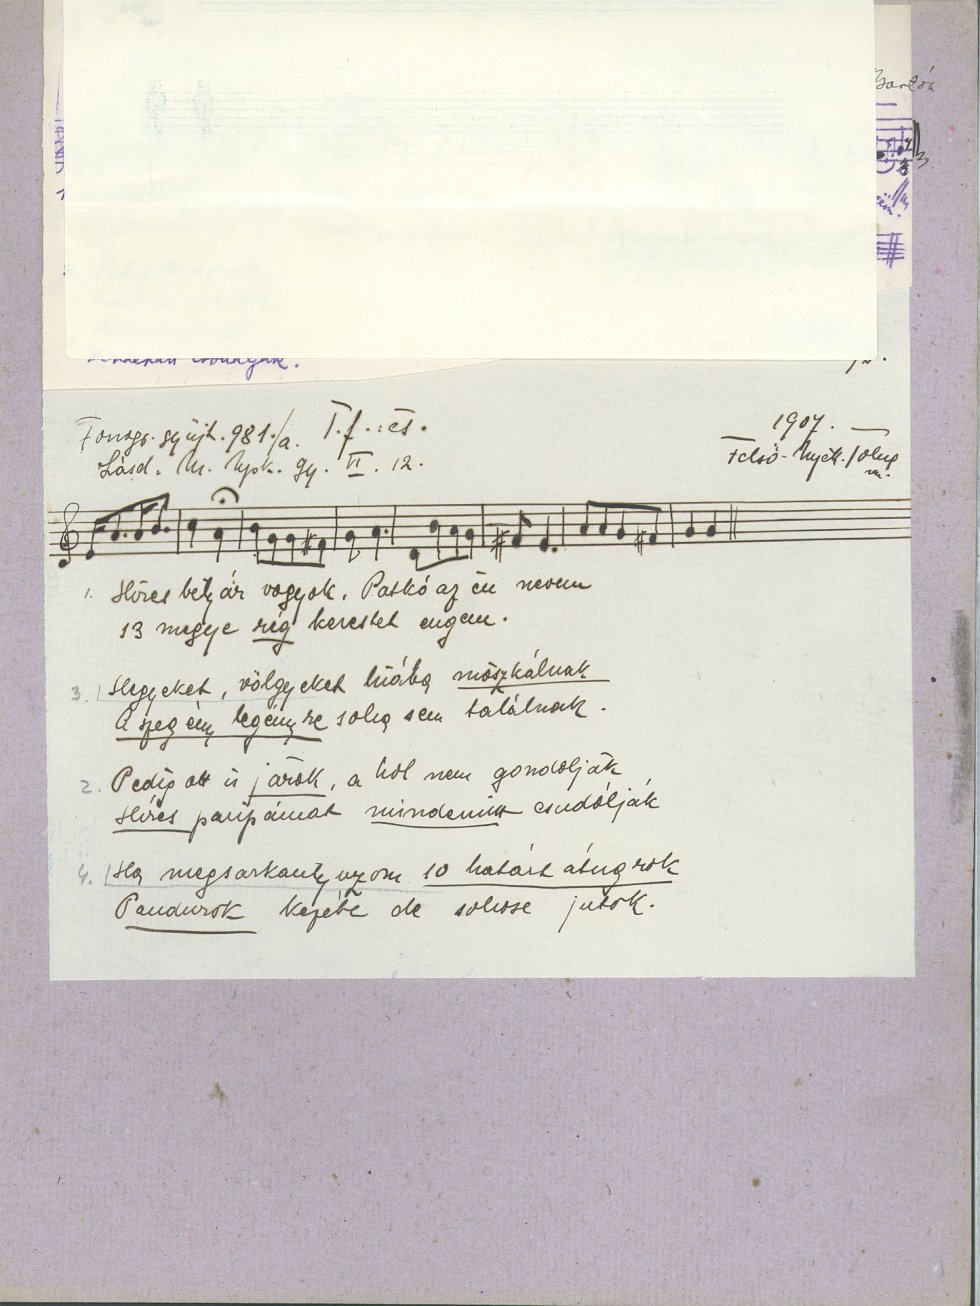 Bartók
csudálják.
Fonogr. gyüjt. 981./a. T.f.: és.
1907.
Lásd. M. Npk. gy. II. 12.
Felső-Nyék. Tolna
m.
1. Híres betyár vagyok, Patkó az én nevem
13 megye rég kerestet engem.
3. Hegyeket, völgyeket hiába mászkálnak
A szegény legényre soha sem találnak.
2. Pedig ott is járok, a hol nem gondolják
Híres paripámat mindenütt csudólják
4. Ha megsarkantyuzom 10 határt átugrok
Pandurok kezébe de sohose jutok.